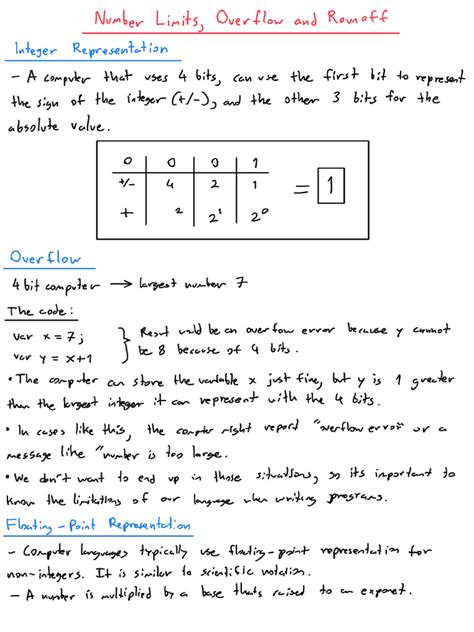 Number Limits, Overflow and Rounoff
Integer Representation
- A computer that uses 4 bits, can use the first bit to represent
the sign of the integer (+/-), and the other 3 bits for the
absolute value.
0 0 0 1
+/- 4 2 1 = 1
+ 2 2¹ 2⁰
Overflow
4 bit computer → largest number 7
The code:
var x = 7;
var y = x+1
Result would be an overflow error because y cannot
be 8 because of 4 bits.
• The computer can store the variable x just fine, but y is 1 greater
than the largest integer it can represent with the 4 bits.
• In cases like this, the computer might report "overflow error" or a
message like "number is too large.
• We don't want to end up in those situations, so its important to
know the limitations of our language when writing programs.
Floating-Point Representation
- Computer languages typically use floating-point representation for
non-integers. It is similar to scientific notation.
- A number is multiplied by a base thats raised to an exponet.